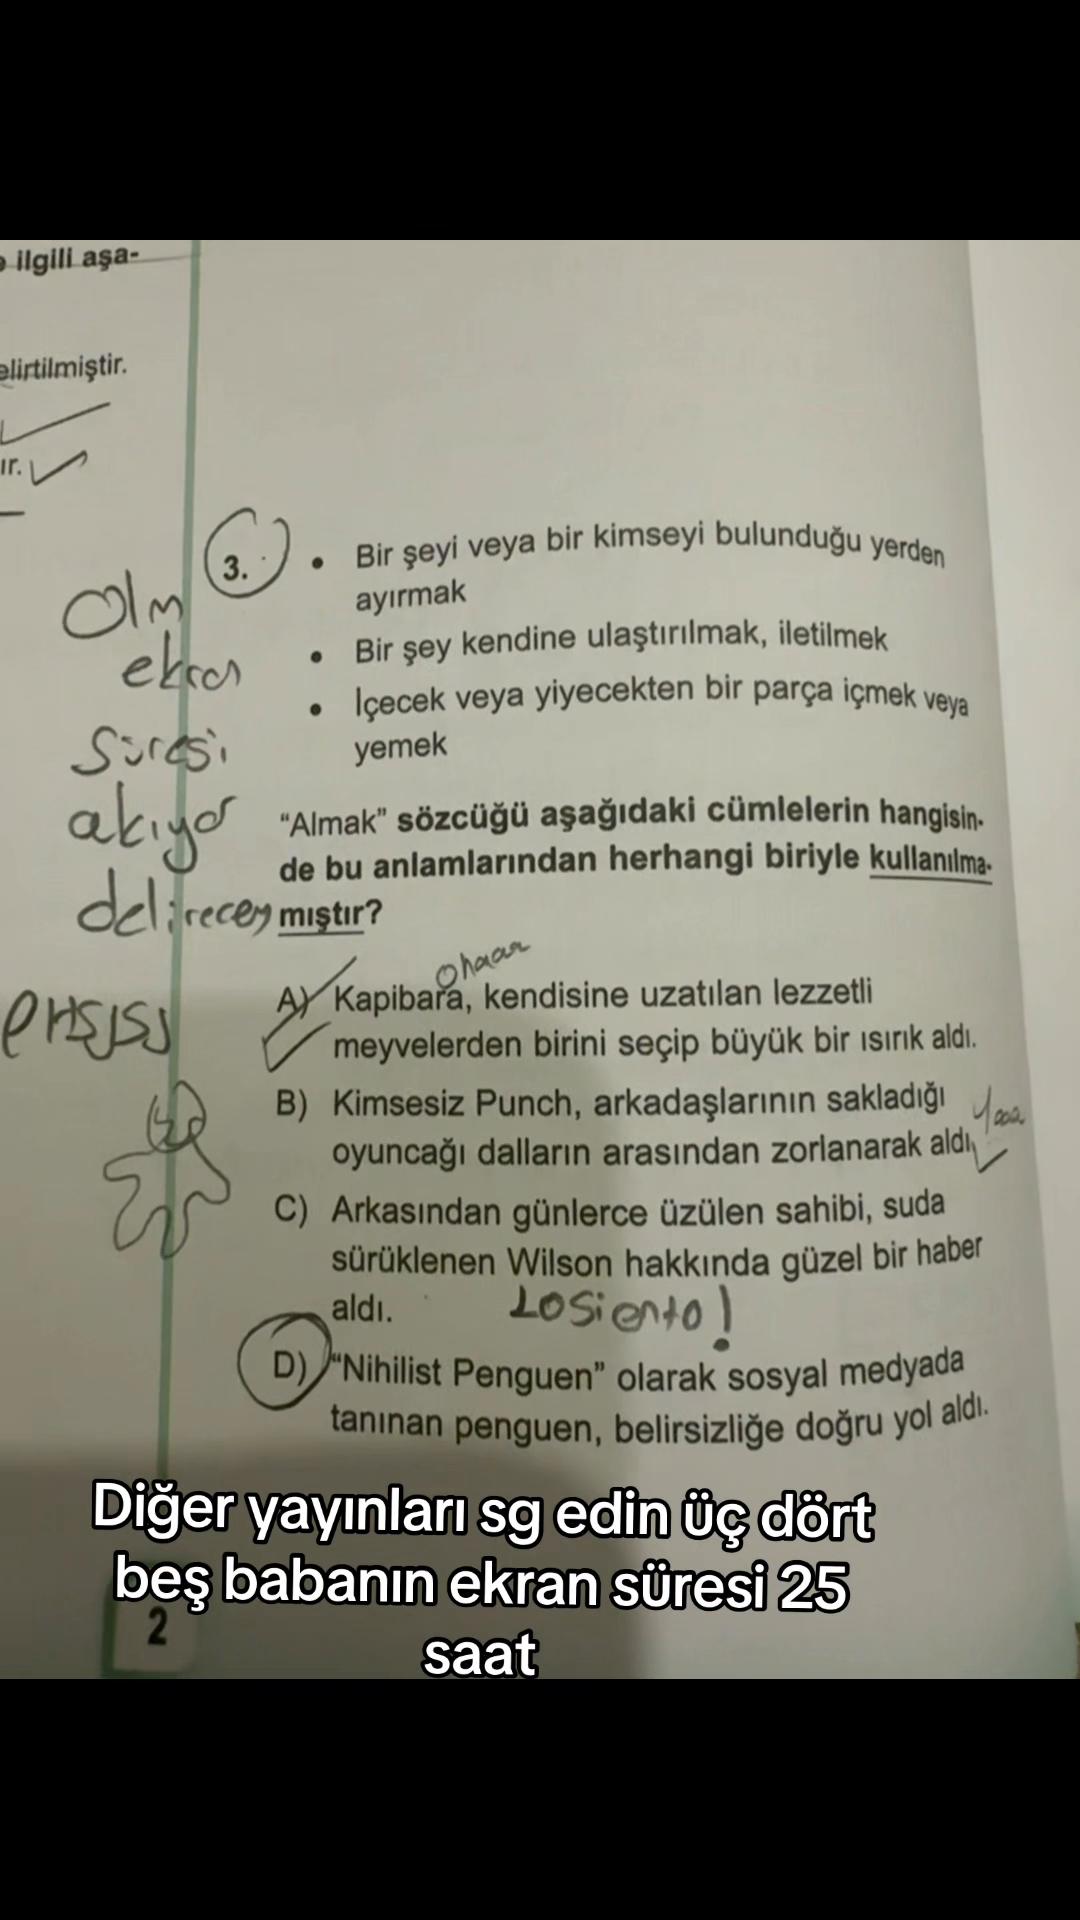 ilgili aşa-
elirtilmiştir.
ır.
3.
• Bir şeyi veya bir kimseyi bulunduğu yerden
ayırmak
• Bir şey kendine ulaştırılmak, iletilmek
• İçecek veya yiyecekten bir parça içmek veya
yemek
Olm
ekran
süresi
akıyor
delirecem
"Almak" sözcüğü aşağıdaki cümlelerin hangisin-
de bu anlamlarından herhangi biriyle kullanılma-
mıştır?
ohaaa
A) Kapibara, kendisine uzatılan lezzetli
meyvelerden birini seçip büyük bir ısırık aldı.
B) Kimsesiz Punch, arkadaşlarının sakladığı
oyuncağı dalların arasından zorlanarak aldı.
Yaaa
C) Arkasından günlerce üzülen sahibi, suda
sürüklenen Wilson hakkında güzel bir haber
aldı.
Losiento!
D) "Nihilist Penguen" olarak sosyal medyada
tanınan penguen, belirsizliğe doğru yol aldı.
Diğer yayınları sg edin üç dört
beş babanın ekran süresi 25
saat
2